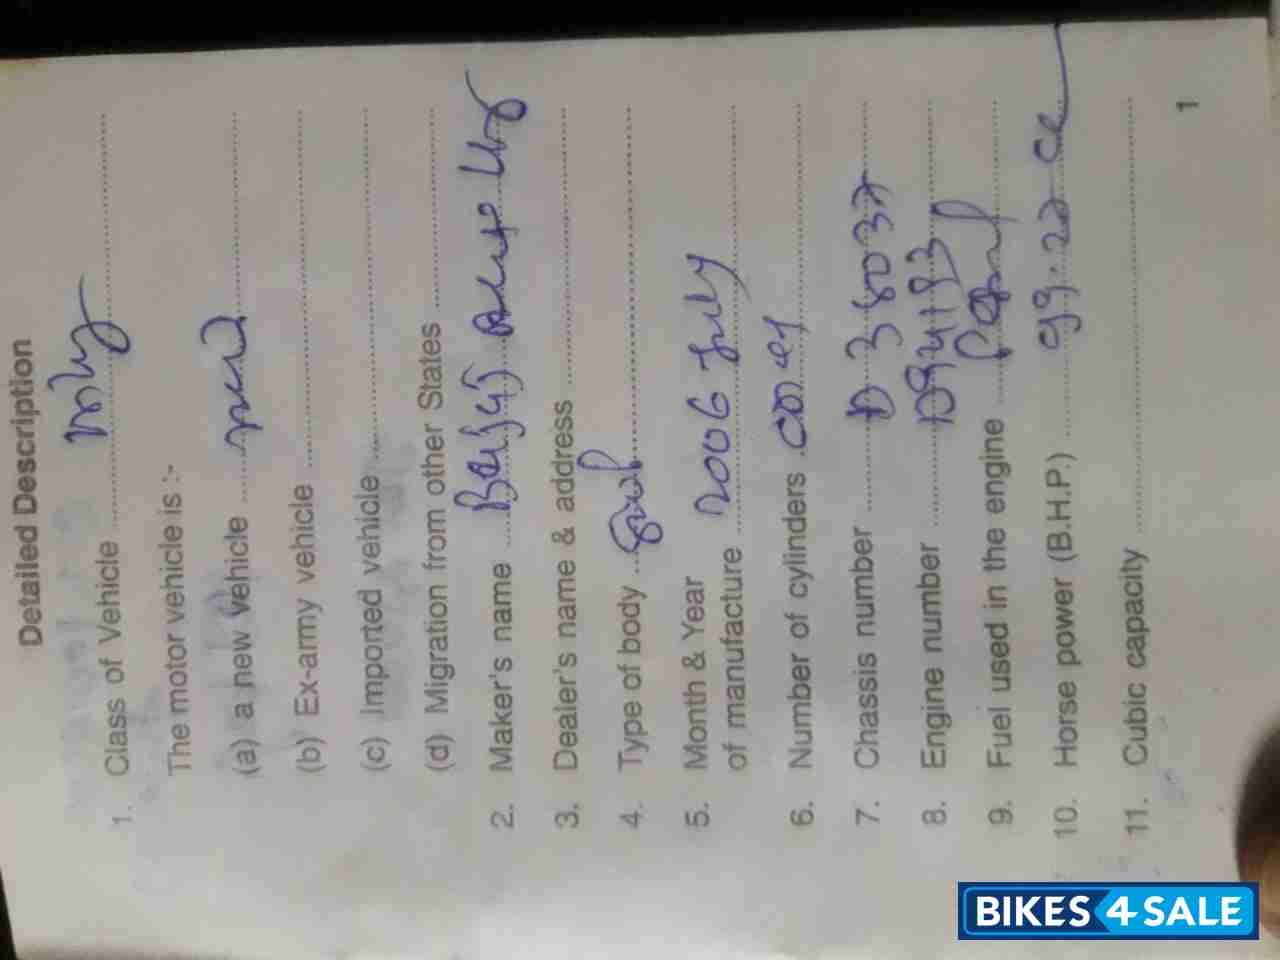 Detailed Description
1. Class of Vehicle
The motor vehicle is :-
(a) a new vehicle new
(b) Ex-army vehicle
(c) Imported vehicle
(d) Migration from other States
2. Maker's name Bajaj Auto Ltd
3. Dealer's name & address
4. Type of body
5. Month & Year
of manufacture 2006 July
6. Number of cylinders one
7. Chassis number
8. Engine number
9. Fuel used in the engine Petrol
10. Horse power (B.H.P.) 99.27 cc
11. Cubic capacity
1
BIKES4SALE